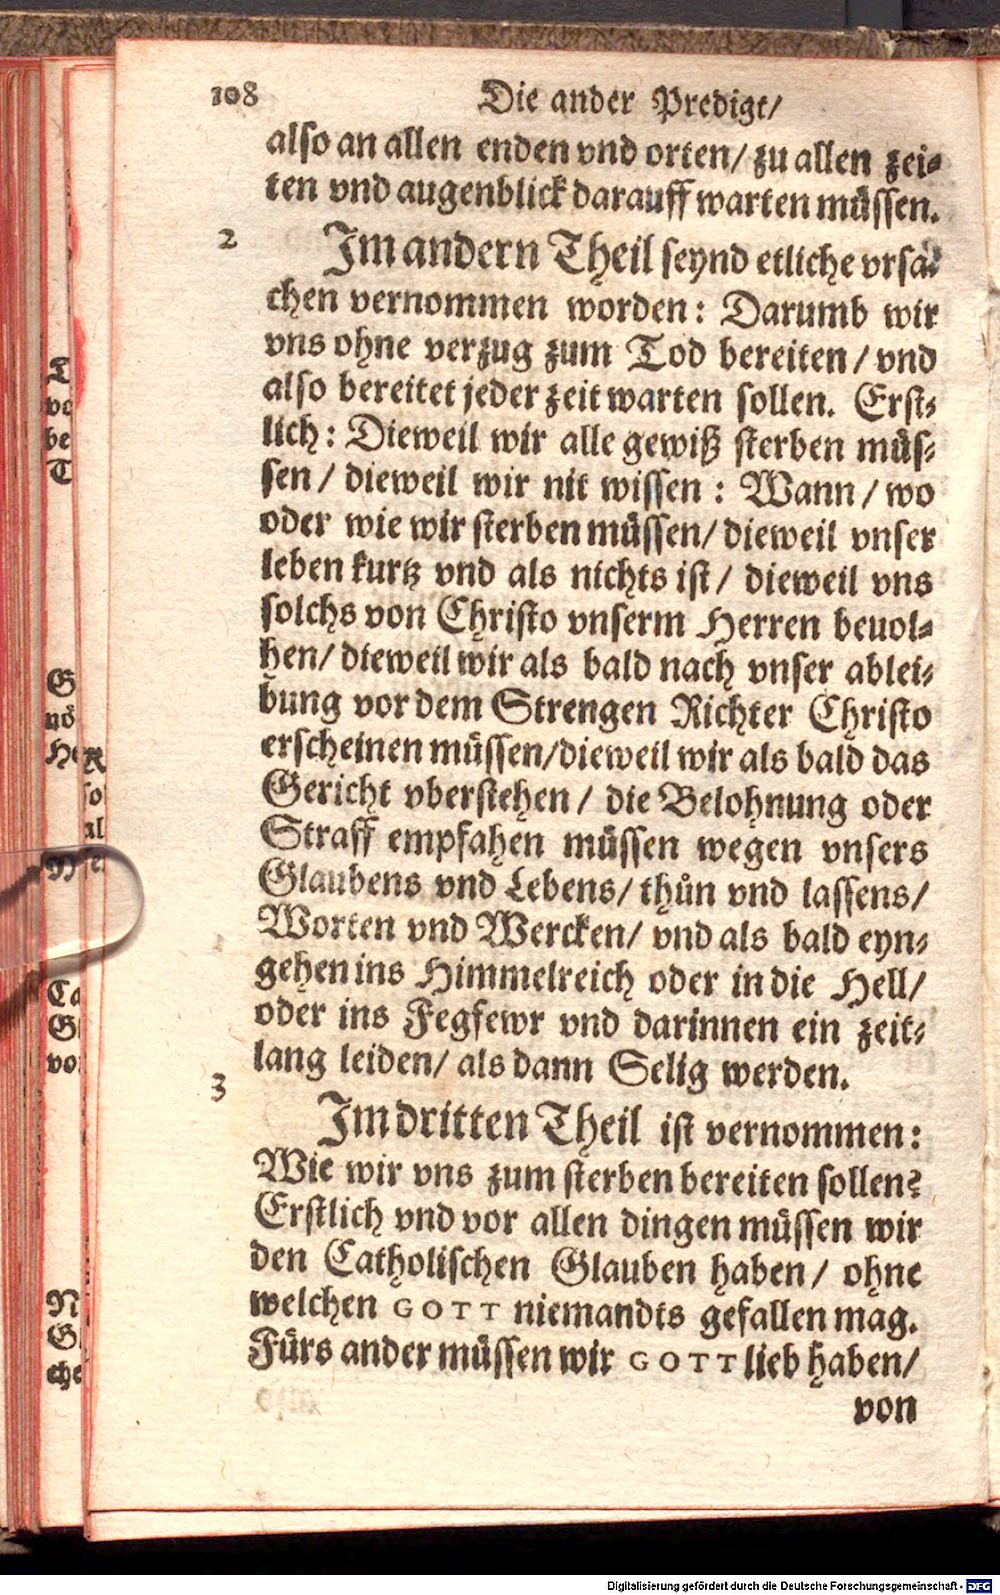 108 Die ander Predigt/
also an allen enden vnd orten/ zu allen zei⸗
ten vnd augenblick darauff warten müssen.
2 Im andern Theil seynd etliche vrsa⸗
chen vernommen worden: Darumb wir
vns ohne verzug zum Tod bereiten/ vnd
also bereitet jeder zeit warten sollen. Erst⸗
lich: Dieweil wir alle gewiß sterben müs⸗
sen/ dieweil wir nit wissen: Wann/ wo
oder wie wir sterben müssen/ dieweil vnser
leben kurtz vnd als nichts ist/ dieweil vns
solchs von Christo vnserm Herren beuol⸗
hen/ dieweil wir als bald nach vnser ablei⸗
bung vor dem Strengen Richter Christo
erscheinen müssen/ dieweil wir als bald das
Gericht vberstehen/ die Belohnung oder
Straff empfahen müssen wegen vnsers
Glaubens vnd Lebens/ thůn vnd lassens/
Worten vnd Wercken/ vnd als bald eyn⸗
gehen ins Himmelreich oder in die Hell/
oder ins Fegfewr vnd darinnen ein zeit⸗
lang leiden/ als dann Selig werden.
3 Im dritten Theil ist vernommen:
Wie wir vns zum sterben bereiten sollen?
Erstlich vnd vor allen dingen müssen wir
den Catholischen Glauben haben/ ohne
welchen GOTT niemandts gefallen mag.
Fürs ander müssen wir GOTT lieb haben/
von
Digitalisierung gefördert durch die Deutsche Forschungsgemeinschaft - DFG